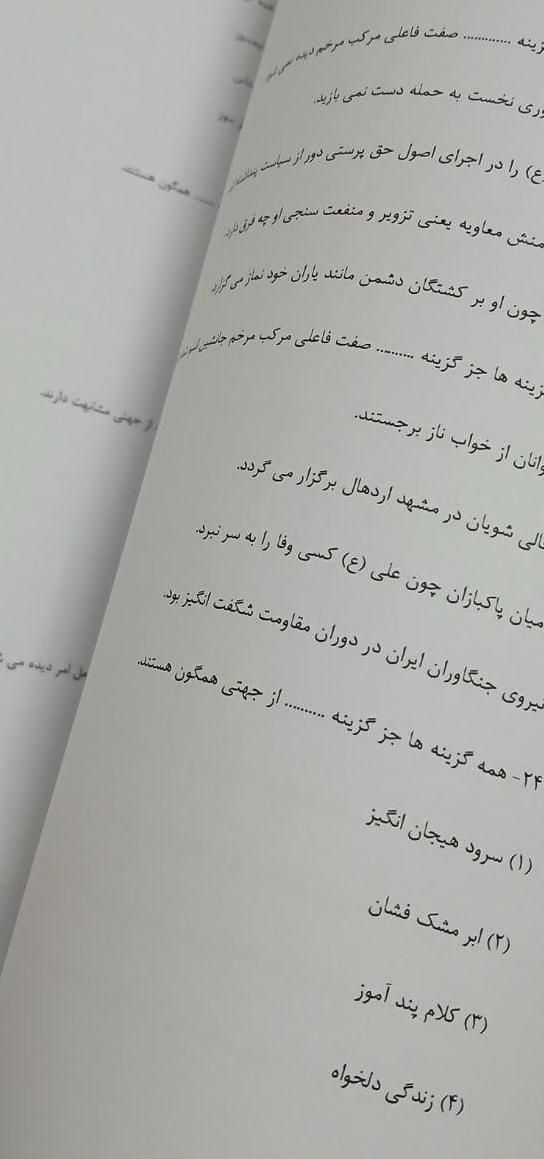 ............ صفت فاعلی مرکب مرخم دیده نمی شود
نخست به حمله دست نمی یازید.
را در اجرای اصول حق پرستی دور از سیاست
منش معاویه یعنی تزویر و منفعت سنجی او چه فرق دارد.
چون او بر کشتگان دشمن مانند یاران خود نماز می گزارد
گزینه ها جز گزینه ......... صفت فاعلی مرکب مرخم جانشین
از خواب ناز برجستند.
شویان در مشهد اردهال برگزار می گردد.
میان پاکبازان چون علی (ع) کسی وفا را به سر نبرد.
نیروی جنگاوران ایران در دوران مقاومت شگفت انگیز بود.
۲۴- همه گزینه ها جز گزینه ......... از جهتی همگون هستند.
(۱) سرود هیجان انگیز
(۲) ابر مشک فشان
(۳) کلام پند آموز
(۴) زندگی دلخواه
همگون هستند.
از جهتی مشابهت دارند.
امر دیده می